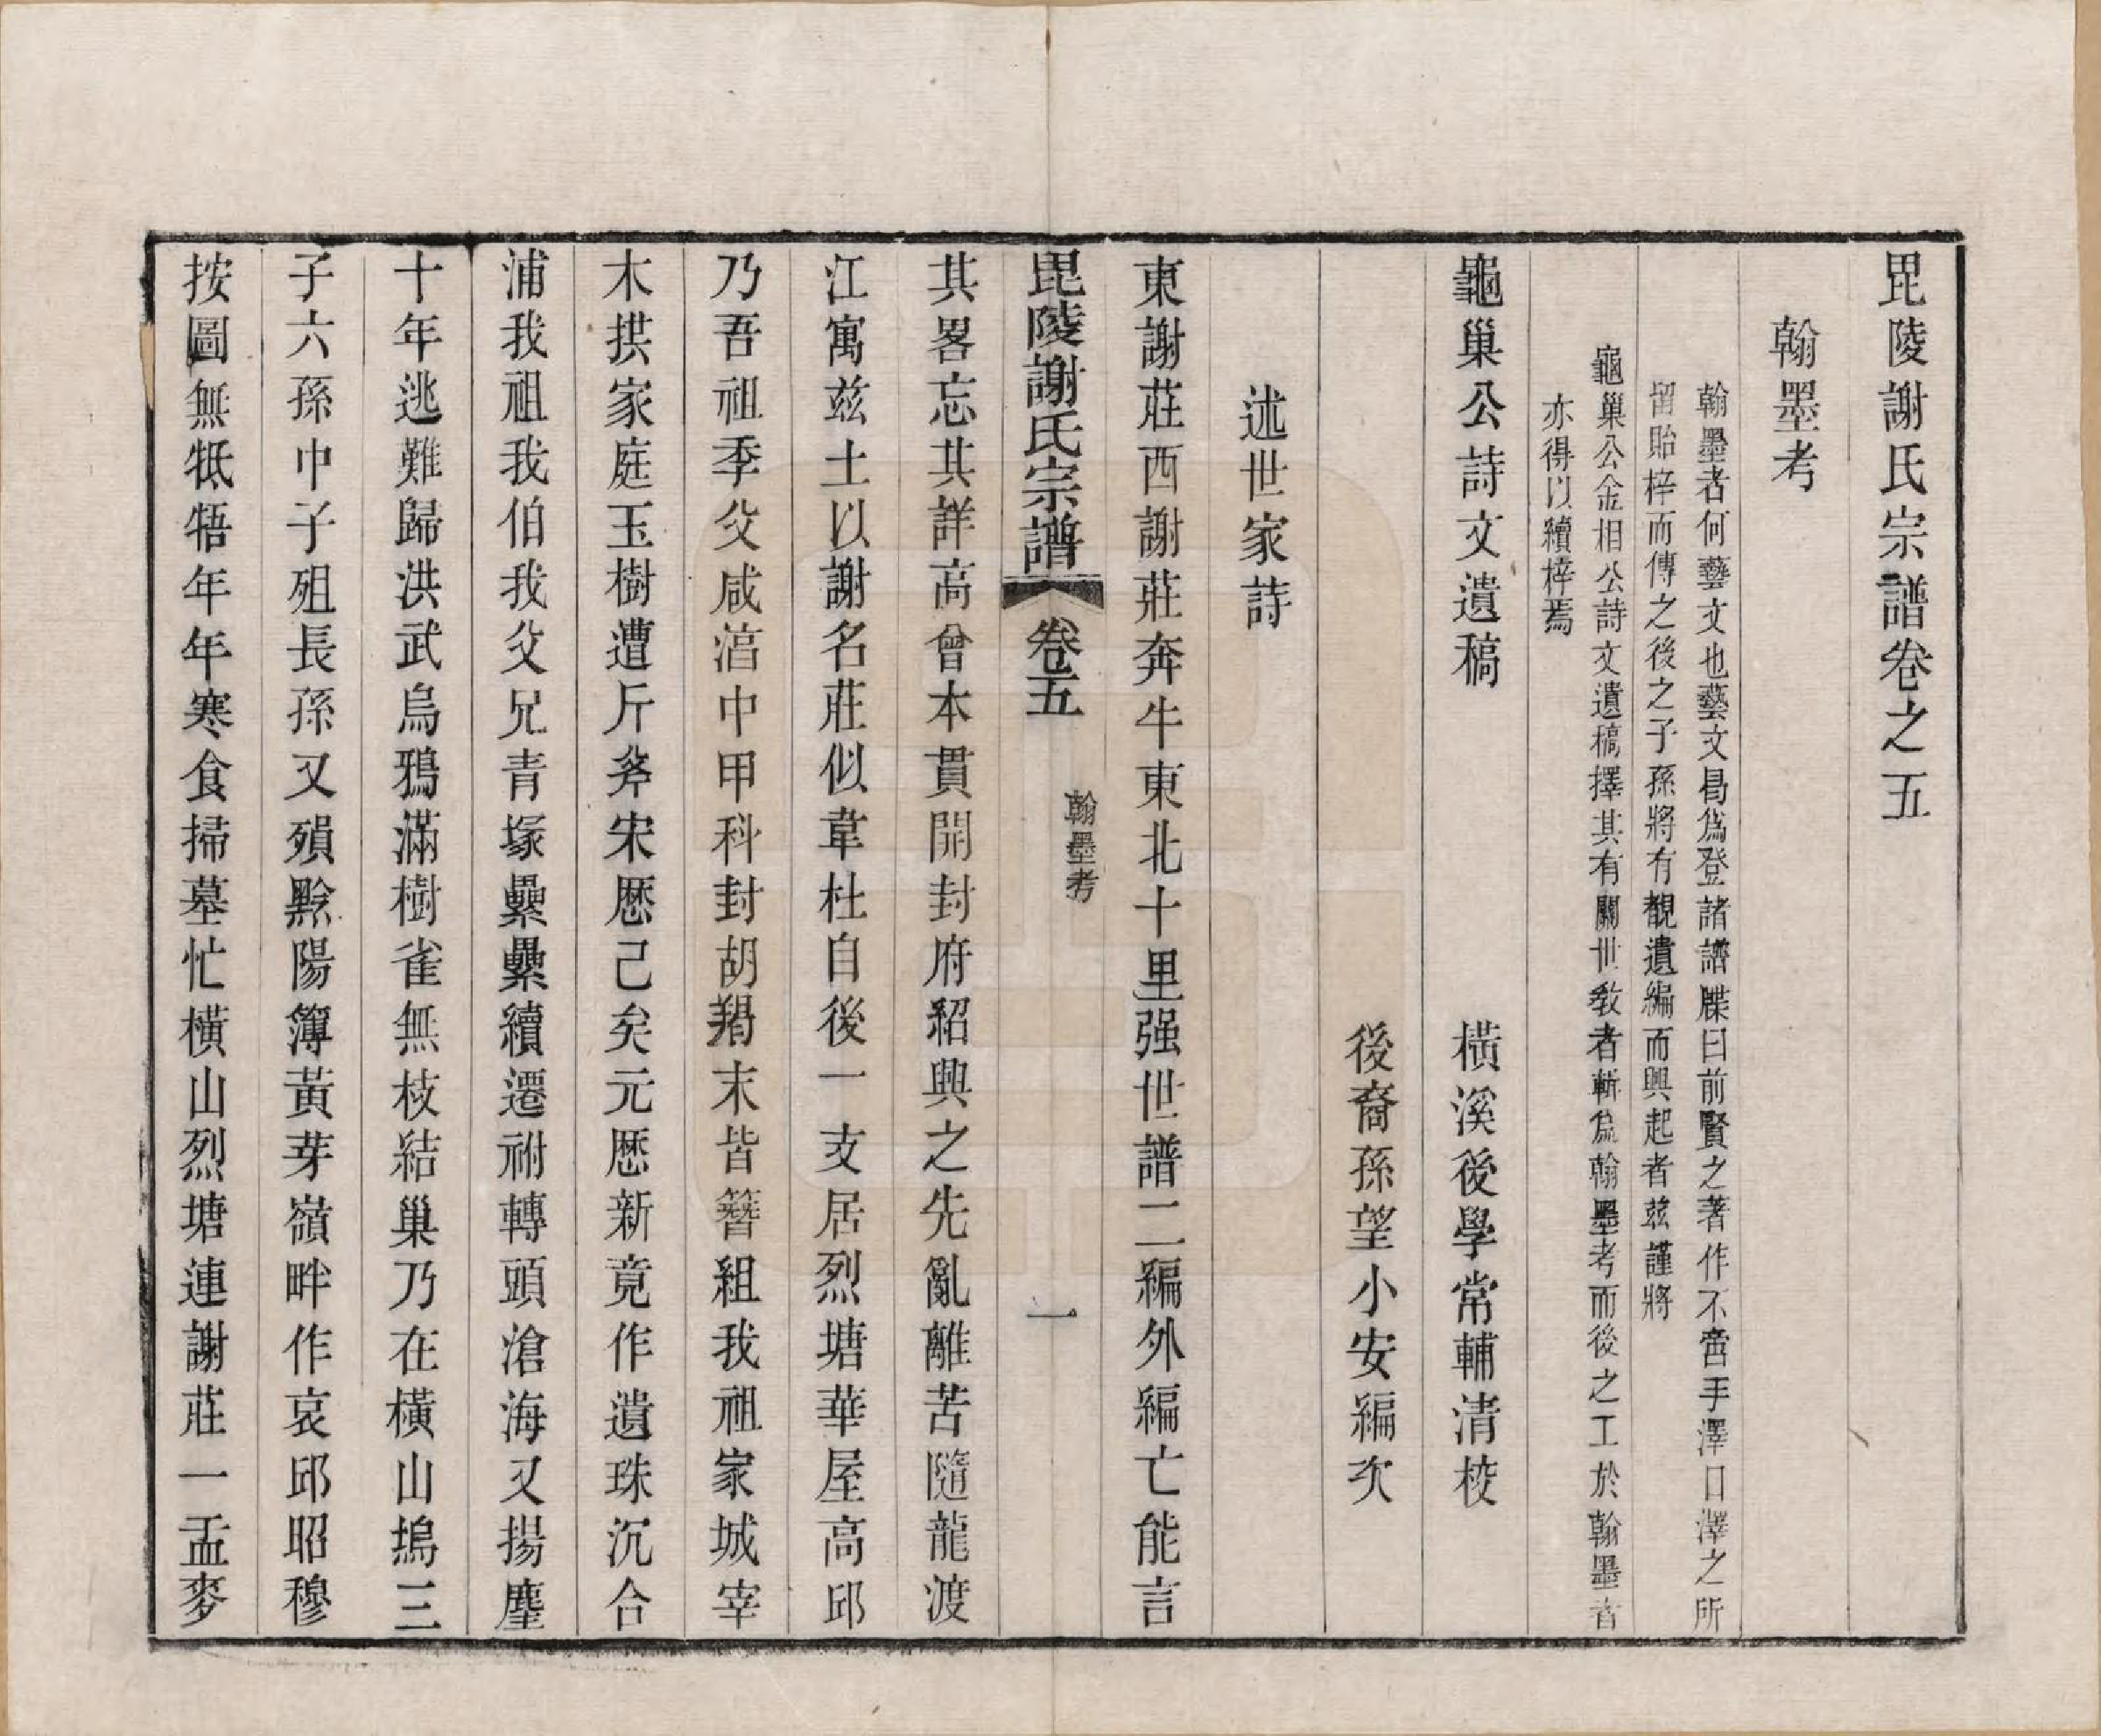 毘陵謝氏宗譜卷之五
翰墨考
翰墨者何藝文也藝文曷爲登諸譜牒曰前賢之著作不啻手澤口澤之所
留貽梓而傳之後之子孫將有覩遺編而興起者兹謹將
龜巢公金相公詩文遺稿擇其有關世敎者輯爲翰墨考而後之工於翰墨者
亦得以續梓焉
龜巢公詩文遺稿
橫溪後學常輔清校
後裔孫望小安編次
述世家詩
東謝莊西謝莊奔牛東北十里强世譜二編外編亡能言
毘陵謝氏宗譜
卷五
翰墨考
一
其畧忘其詳高曾本貫開封府紹興之先亂離苦隨龍渡
江寓兹土以謝名莊似韋杜自後一支居烈塘華屋高邱
乃吾祖季父咸湻中甲科封胡羯末皆簪組我祖家城宰
木拱家庭玉樹遭斤斧宋厯己矣元厯新竟作遺珠沉合
浦我祖我伯我父兄青塚纍纍續遷祔轉頭滄海又揚塵
十年逃難歸洪武烏鴉滿樹雀無枝結巢乃在橫山塢三
子六孫中子殂長孫又殞黟陽簿黃芽嶺畔作哀邱昭穆
按圖無牴牾年年寒食掃墓忙橫山烈塘連謝莊一盂麥